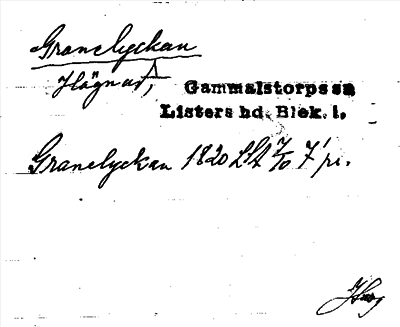 Granelyckan
Hägnad, Gammalstorps sn
Listers hd. Blek. l.
Granelyckan 1820 LSA 7/10 7' pr.